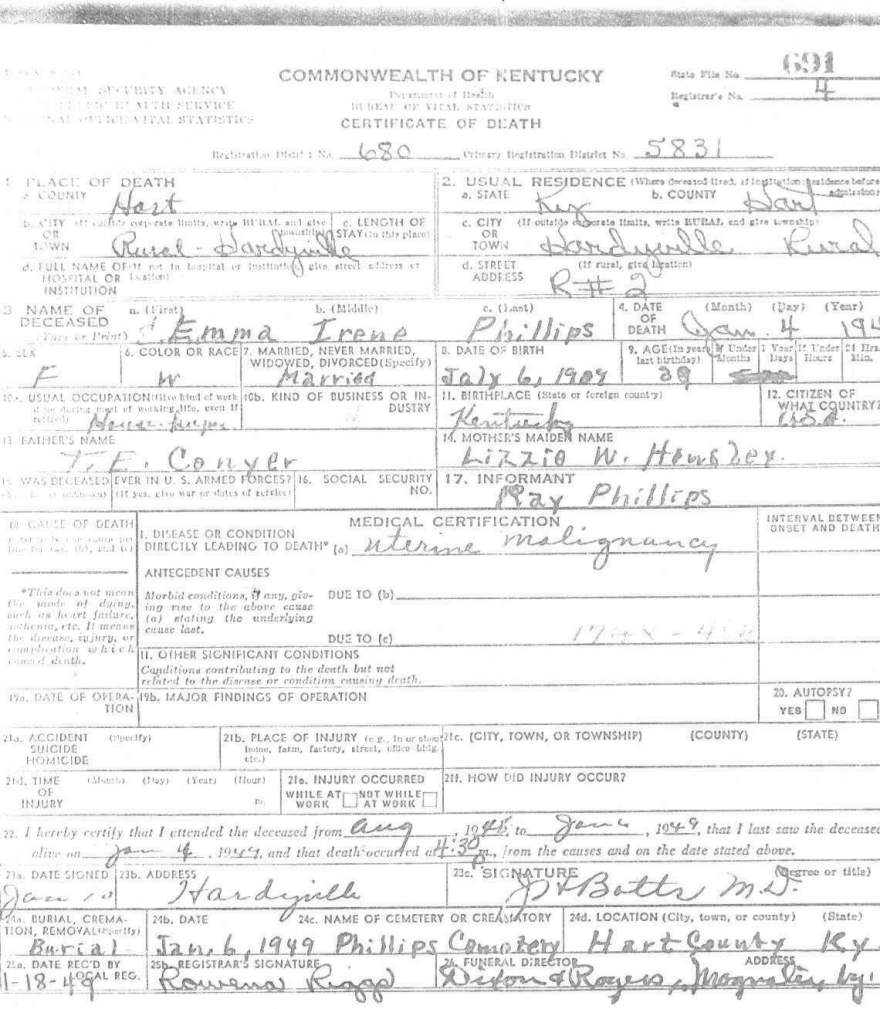 COMMONWEALTH OF KENTUCKY
Department of Health
BUREAU OF VITAL STATISTICS
CERTIFICATE OF DEATH
SECURITY AGENCY
HEALTH SERVICE
VITAL STATISTICS
State File No. 691
Registrar's No. 4
Registration District No. 680 Primary Registration District No. 5831
1. PLACE OF DEATH
a. COUNTY Hart
b. CITY (If outside corporate limits, write RURAL and give township) OR TOWN Rural - Hardyville
c. LENGTH OF STAY (in this place)
d. FULL NAME OF (If not in hospital or institution, give street address or location) HOSPITAL OR INSTITUTION
2. USUAL RESIDENCE (Where deceased lived, if institution: residence before admission)
a. STATE Ky b. COUNTY Hart
c. CITY (If outside corporate limits, write RURAL and give township) OR TOWN Hardyville Rural
d. STREET ADDRESS (If rural, give location) R#2
3. NAME OF DECEASED (Type or Print) a. (First) Emma b. (Middle) Irene c. (Last) Phillips
4. DATE OF DEATH (Month) (Day) (Year) Jan. 4 194
5. SEX F
6. COLOR OR RACE W
7. MARRIED, NEVER MARRIED, WIDOWED, DIVORCED (Specify) Married
8. DATE OF BIRTH July 6, 1909
9. AGE (In years last birthday) 39 If Under 1 Year Months Days If Under 24 Hrs. Hours Min.
10a. USUAL OCCUPATION (Give kind of work done during most of working life, even if retired) House-keeper
10b. KIND OF BUSINESS OR INDUSTRY
11. BIRTHPLACE (State or foreign country) Kentucky
12. CITIZEN OF WHAT COUNTRY? U.S.A.
13. FATHER'S NAME T. E. Conyer
14. MOTHER'S MAIDEN NAME Lizzie W. Hensley.
15. WAS DECEASED EVER IN U. S. ARMED FORCES? (If yes, give war or dates of service)
16. SOCIAL SECURITY NO.
17. INFORMANT Ray Phillips
18. CAUSE OF DEATH
MEDICAL CERTIFICATION
INTERVAL BETWEEN ONSET AND DEATH
I. DISEASE OR CONDITION DIRECTLY LEADING TO DEATH* (a) Uterine malignancy
ANTECEDENT CAUSES
Morbid conditions, if any, giving rise to the above cause (a) stating the underlying cause last.
DUE TO (b)
DUE TO (c)
*This does not mean the mode of dying, such as heart failure, asthenia, etc. It means the disease, injury, or complication which caused death.
II. OTHER SIGNIFICANT CONDITIONS
Conditions contributing to the death but not related to the disease or condition causing death.
19a. DATE OF OPERATION
19b. MAJOR FINDINGS OF OPERATION
20. AUTOPSY?
YES NO
21a. ACCIDENT SUICIDE HOMICIDE (Specify)
21b. PLACE OF INJURY (e.g., in or about home, farm, factory, street, office bldg. etc.)
21c. (CITY, TOWN, OR TOWNSHIP) (COUNTY) (STATE)
21d. TIME OF INJURY (Month) (Day) (Year) (Hour) m.
21e. INJURY OCCURRED WHILE AT WORK NOT WHILE AT WORK
21f. HOW DID INJURY OCCUR?
22. I hereby certify that I attended the deceased from Aug, 1948, to Jan 4, 1949, that I last saw the deceased
alive on Jan 4, 1949, and that death occurred at 4:30 p m., from the causes and on the date stated above.
23a. DATE SIGNED Jan 10
23b. ADDRESS Hardyville
23c. SIGNATURE (Degree or title) Botts M.D.
24a. BURIAL, CREMATION, REMOVAL (Specify) Burial
24b. DATE Jan, 6, 1949
24c. NAME OF CEMETERY OR CREMATORY Phillips Cemetery
24d. LOCATION (City, town, or county) (State) Hart County Ky
25a. DATE REC'D BY LOCAL REG. 1-18-49
25b. REGISTRAR'S SIGNATURE Rowena Riggs
26. FUNERAL DIRECTOR ADDRESS Dixon & Rogers, Magnolia, Ky.